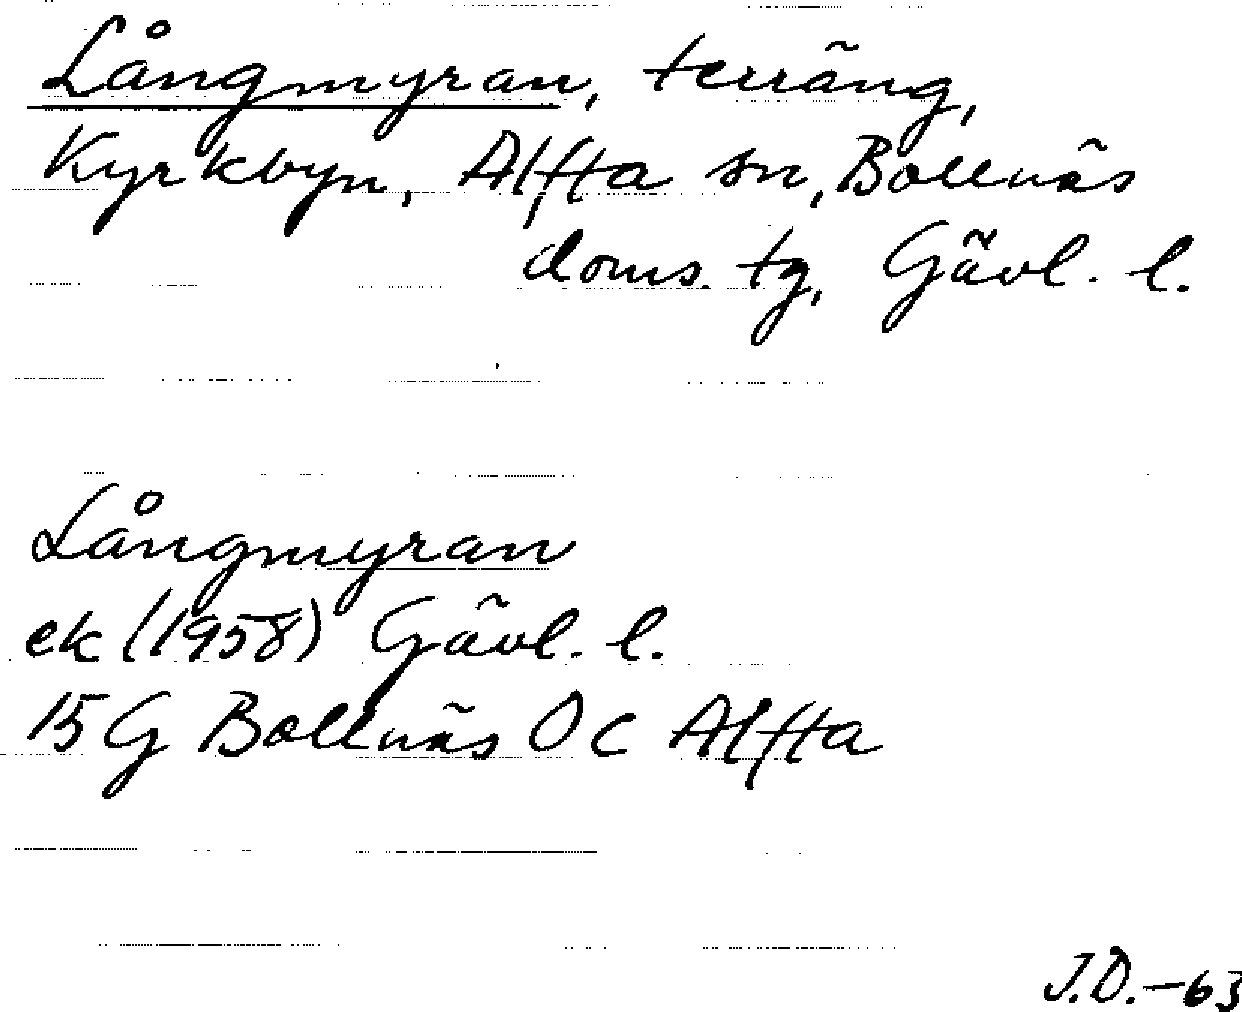 Långmyran, terräng,
Kyrkbyn, Alfta sn, Bollnäs
doms. tg, Gävl. l.
Långmyran
ek (1958) Gävl. l.
15 G Bollnäs Ö c Alfta
J.D.-63